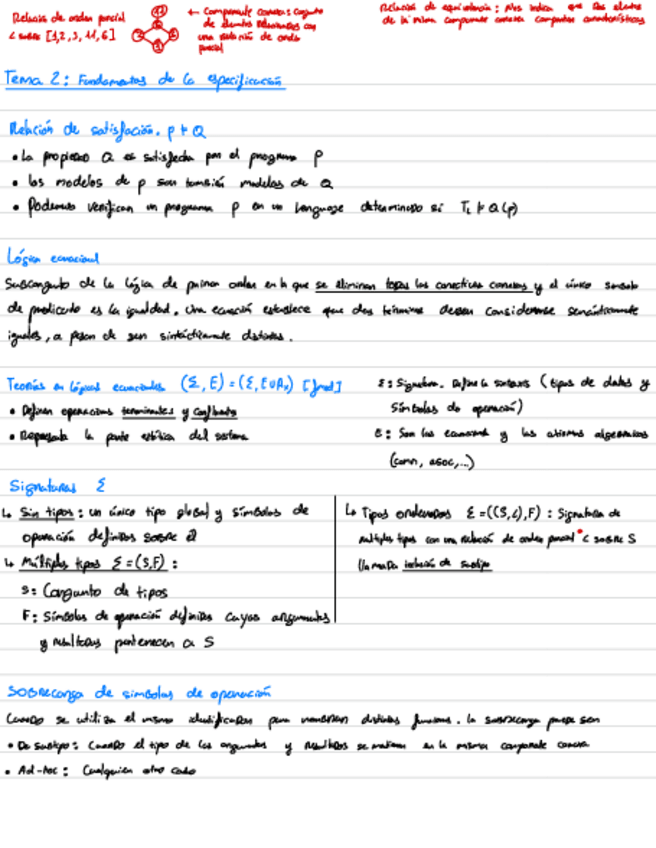 Relación de orden parcial
< sobre [1,2,3,11,6]
← Componente conexa: conjunto
de elementos relacionados con
una relación de orden
parcial
Relación de equivalencia: Nos indica que dos elementos
de la misma componente conexa comparten características
Tema 2: Fundamentos de la especificación
Relación de satisfacción. P ⊨ Q
• La propiedad Q es satisfecha por el programa P
• los modelos de P son también modelos de Q
• Podemos verificar un programa P en un lenguaje determinado si T_L ⊨ Q(P)
Lógica ecuacional
Subconjunto de la lógica de primer orden en la que se eliminan todas las conectivas y el único símbolo
de predicado es la igualdad. Una ecuación establece que dos términos deben considerarse semánticamente
iguales, a pesar de ser sintácticamente distintos.
Teorías en lógicas ecuacionales (Σ, E) = (Σ, E∪Ax) [fmod]
• Definen operaciones terminantes y confluentes
• Representa la parte estática del sistema
Σ: Signatura. Define la sintaxis (tipos de datos y
símbolos de operación)
E: Son las ecuaciones y los axiomas algebraicos
(comm, assoc,...)
Signaturas Σ
↳ Sin tipos: un único tipo global y símbolos de
operación definidos sobre él
↳ Múltiples tipos Σ=(S,F):
S: Conjunto de tipos
F: Símbolos de operación definidos cuyos argumentos
y resultados pertenecen a S
↳ Tipos ordenados Σ=((S,<),F): Signatura de
múltiples tipos con una relación de orden parcial < sobre S
llamada inclusión de subtipo
Sobrecarga de símbolos de operación
Cuando se utiliza el mismo identificador para nombrar distintas funciones. La sobrecarga puede ser
• De subtipo: Cuando el tipo de los argumentos y resultados se mantienen en la misma componente conexa
• Ad-hoc: Cualquier otro caso